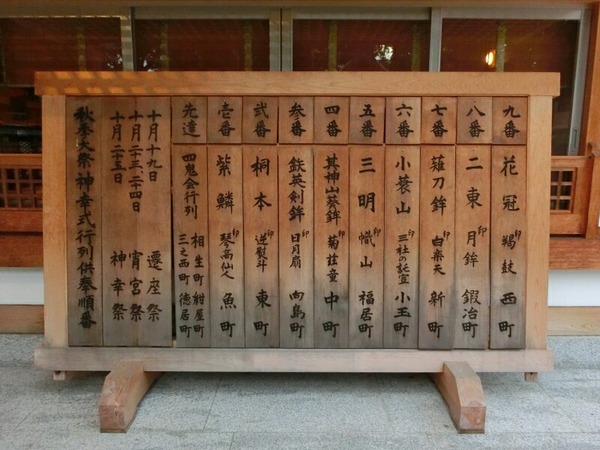 秋季大祭神幸式行列供奉順番
十月二十五日 神幸祭
十月二十三・二十四日 宵宮祭
十月十九日 遷座祭
先達 四鬼会行列
相生町 紺屋町
三之西町 徳居町
壱番 紫鱗 印琴高仙人 魚町
弐番 桐本 印逆熨斗 東町
参番 鉄英剣鉾 印日月扇 向島町
四番 其神山葵鉾 印菊慈童 中町
五番 三明 印幟山 福居町
六番 小蓑山 印三社の託宣 小玉町
七番 薙刀鉾 印白楽天 新町
八番 二東 印月鉾 鍛冶町
九番 花冠 印羯鼓 西町